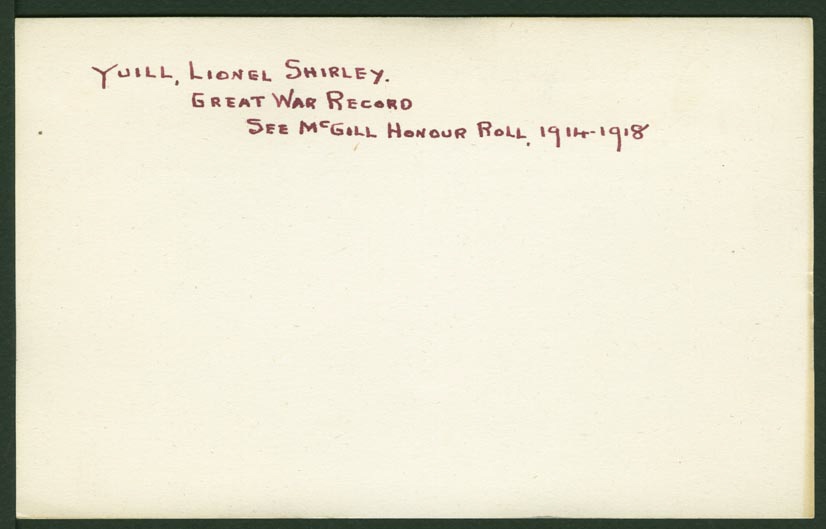 Yuill, Lionel Shirley.
Great War Record
See McGill Honour Roll, 1914-1918